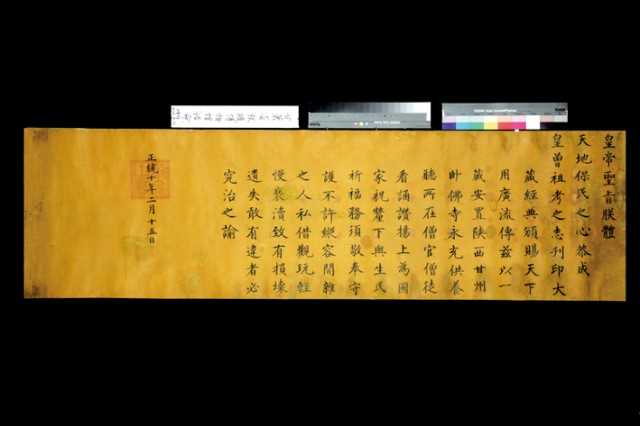 皇帝聖旨朕體
天地保民之心恭成
皇曾祖考之志刊印大
藏經典頒賜天下
用廣流傳茲以一
藏安置陝西甘州
卧佛寺永充供養
聽所在僧官僧徒
看誦讚揚上為國
家祝釐下與生民
祈福務須敬奉守
護不許縱容閒雜
之人私借觀玩輕
慢褻瀆致有損壞
遺失敢有違者必
究治之諭
正統十年二月十五日